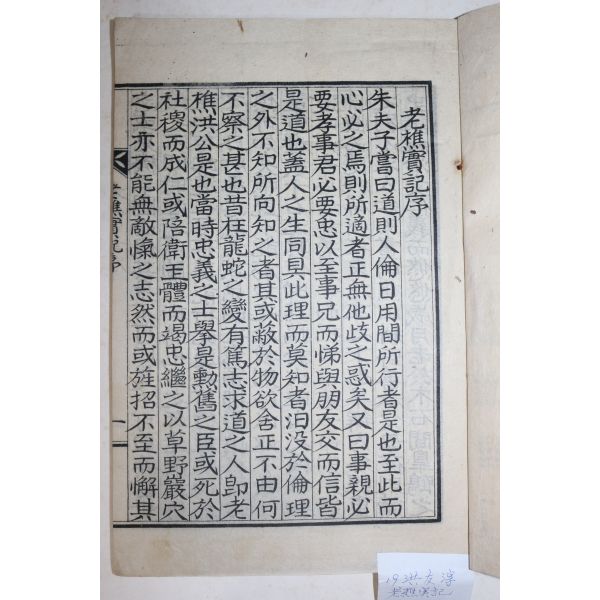 老樵實記序
朱夫子嘗曰道則人倫日用間所行者是也至此而
心必之焉則所適者正無他歧之惑矣又曰事親必
要孝事君必要忠以至事兄而悌與朋友交而信皆
是道也蓋人之生同具此理而莫知者汩沒於倫理
之外不知所向知之者其或蔽於物欲舍正不由何
不察之甚也昔在龍蛇之變有篤志求道之人卽老
樵洪公是也當時忠義之士擧是勳舊之臣或死於
社稷而成仁或陪衛王體而竭忠繼之以草野巖穴
之士亦不能無敵愾之志然而或旌招不至而懈其
老樵實記序
一
19 洪友淳
老樵实記